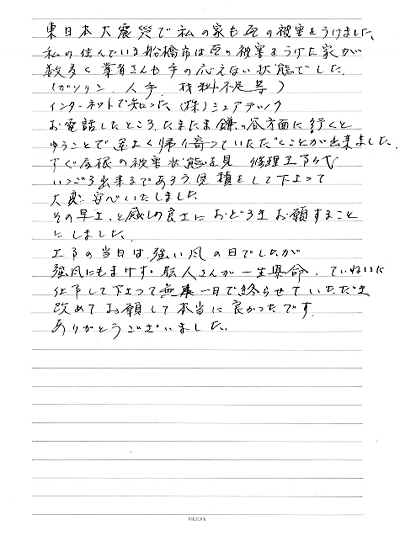 東日本大震災で私の家も瓦の被害をうけました。
私の住んでいる船橋市は瓦の被害をうけた家が
数多く業者さんも手の応えない状態でした。
(ガソリン、人手、材料不足等)
インターネットで知った(株)シェアテック
お電話したところ、たまたま鎌ヶ谷方面に行くと
ゆうことで運よく帰り寄っていただくことが出来ました。
すぐ屋根の被害状態を見 修理工事代
いつごろ出来るであろう見積をして下さって
大変安心いたしました
その早さと感じの良さにおどろきお願すること
にしました。
工事の当日は強い風の日でしたが
強風にもまけず職人さんが一生懸命、ていねいに
仕事して下さって無事一日で終らせていただき
改めてお願して本当に良かったです。
ありがとうございました。
MIDORI